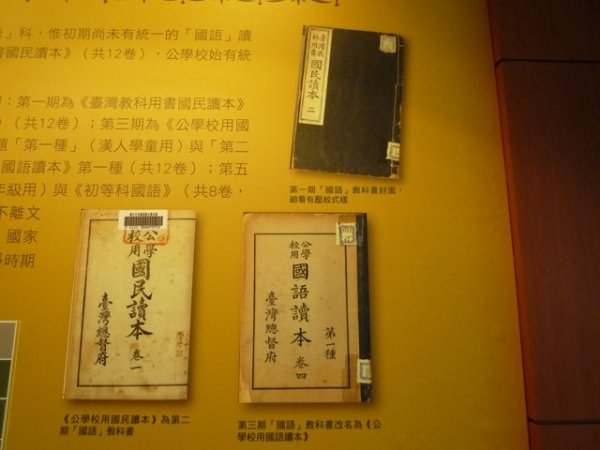 」科，惟初期尚未有統一的「國語」讀
書國民讀本》（共12卷），公學校始有統
：第一期為《臺灣教科用書國民讀本》
》（共12卷）；第三期為《公學校用國
「第一種」（漢人學童用）與「第二
國語讀本》第一種（共12卷）；第五
年級用）與《初等科國語》（共8卷，
不離文
國家
時期
臺灣教
科用書
國民讀本
二
第一期「國語」教科書封面，
細看有壓紋式樣
公學
校用
國民讀本
卷一
臺灣總督府
公學
校用
國語讀本
卷四
第一種
臺灣總督府
《公學校用國民讀本》為第二
期「國語」教科書
第三期「國語」教科書改名為《公
學校用國語讀本》